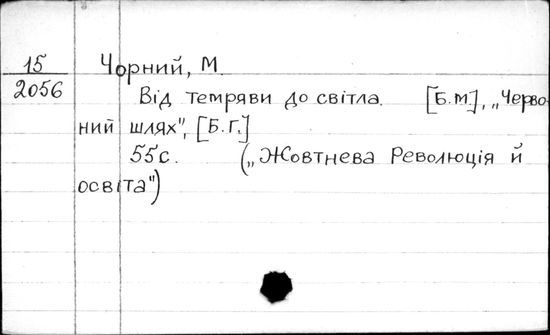 15
2056
Чорний, М.
Від темряви до світла. [Б.м.], „Черво-
ний шлях", [Б.Г.]
55с. („Жовтнева Революція й
освіта")